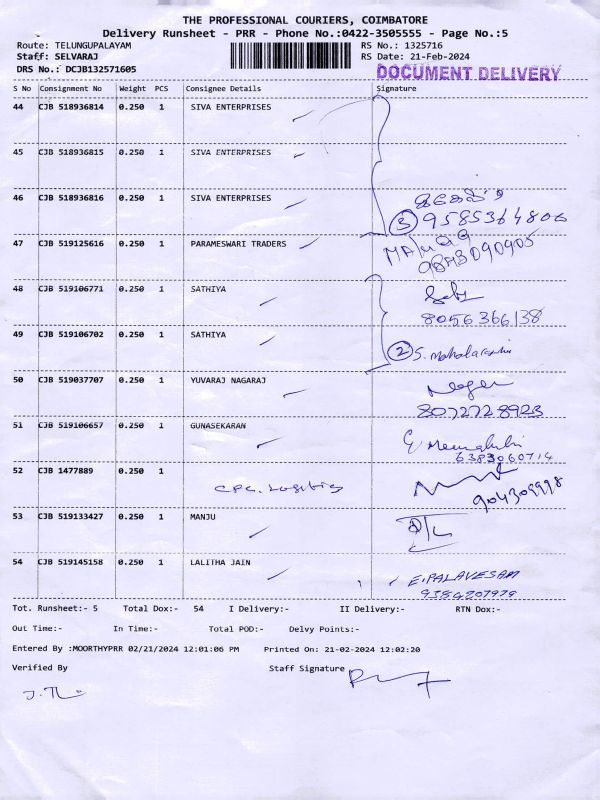 THE PROFESSIONAL COURIERS, COIMBATORE
Delivery Runsheet - PRR - Phone No.:0422-3505555 - Page No.:5
Route: TELUNGUPALAYAM RS No.: 1325716
Staff: SELVARAJ RS Date: 21-Feb-2024
DRS No.: DCJB132571605 DOCUMENT DELIVERY
S No Consignment No Weight PCS Consignee Details Signature
44 CJB 518936814 0.250 1 SIVA ENTERPRISES
45 CJB 518936815 0.250 1 SIVA ENTERPRISES
46 CJB 518936816 0.250 1 SIVA ENTERPRISES
3 9585364806
47 CJB 519125616 0.250 1 PARAMESWARI TRADERS
48 CJB 519106771 0.250 1 SATHIYA
8056366138
49 CJB 519106702 0.250 1 SATHIYA
2 S.
50 CJB 519037707 0.250 1 YUVARAJ NAGARAJ
8072728923
51 CJB 519106657 0.250 1 GUNASEKARAN
6383060714
52 CJB 1477889 0.250 1
53 CJB 519133427 0.250 1 MANJU
54 CJB 519145158 0.250 1 LALITHA JAIN
E.PALAVESAM
9384207979
Tot. Runsheet:- 5 Total Dox:- 54 I Delivery:- II Delivery:- RTN Dox:-
Out Time:- In Time:- Total POD:- Delvy Points:-
Entered By :MOORTHYPRR 02/21/2024 12:01:06 PM Printed On: 21-02-2024 12:02:20
Verified By Staff Signature